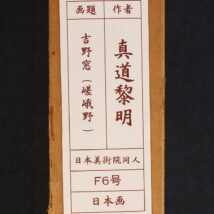 作者
真道黎明
画題
吉野窓(嵯峨野)
日本美術院同人
F6号
日本画